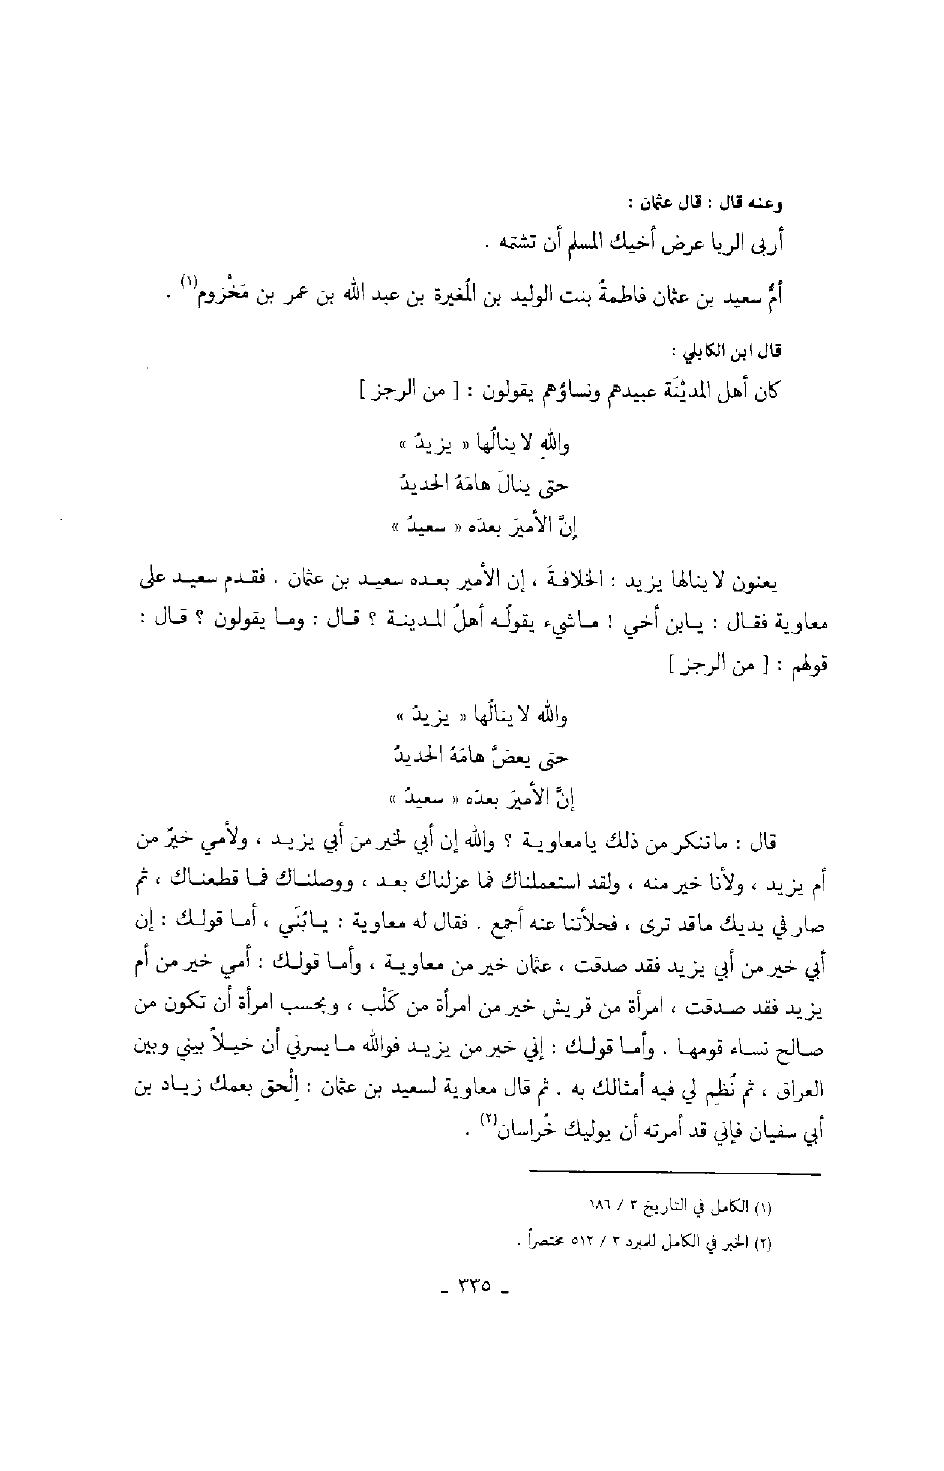 وعنه قال : قال عثمان :
أربى الربا عرض أخيك المسلم أن تشتمه .
أمُّ سعيد بن عثمان فاطمةُ بنت الوليد بن المُغيرة بن عبد الله بن عمر بن مَخْزوم(١) .
قال ابن الكابلي :
كان أهل المديْنَة عبيدهم ونساؤهم يقولون : [ من الرجز ]
واللهِ لا ينالُها « يزيدُ »
حتى ينالَ هامَهُ الحديدُ
إنَّ الأميرَ بعدَه « سعيدُ »
يعنون لا ينالها يزيد : الخلافةَ ، إن الأمير بعده سعيد بن عثمان . فقدم سعيد على
معاوية فقال : يابن أخي ! ماشيء يقولُه أهلُ المدينة ؟ قال : وما يقولون ؟ قال :
قولهم : [ من الرجز ]
والله لا ينالُها « يزيدُ »
حتى يعضَّ هامَهُ الحديدُ
إنَّ الأميرَ بعدَه « سعيدُ »
قال : ماتنكر من ذلك يامعاوية ؟ والله إن أبي لخير من أبي يزيد ، ولأمي خيرٌ من
أم يزيد ، ولأنا خير منه ، ولقد استعملناك فما عزلناك بعد ، ووصلناك فما قطعناك ، ثم
صار في يديك ماقد ترى ، فحلأتنا عنه أجمع . فقال له معاوية : يابُنَي ، أما قولك : إن
أبي خير من أبي يزيد فقد صدقت ، عثمان خير من معاوية ، وأما قولك : أمي خير من أم
يزيد فقد صدقت ، امرأة من قريش خير من امرأة من كَلْب ، وبحسب امرأة أن تكون من
صالح نساء قومها . وأما قولك : إني خير من يزيد فوالله مايسرني أن خيلاً بيني وبين
العراق ، ثم نُظِم لي فيه أمثالك به . ثم قال معاوية لسعيد بن عثمان : إلْحق بعمك زياد بن
أبي سفيان فإني قد أمرته أن يوليك خُراسان(٢) .
(١) الكامل في التاريخ ٣ / ١٨٦
(٢) الخبر في الكامل للمبرد ٣ / ٥١٢ مختصراً .
ـ ٣٣٥ ـ